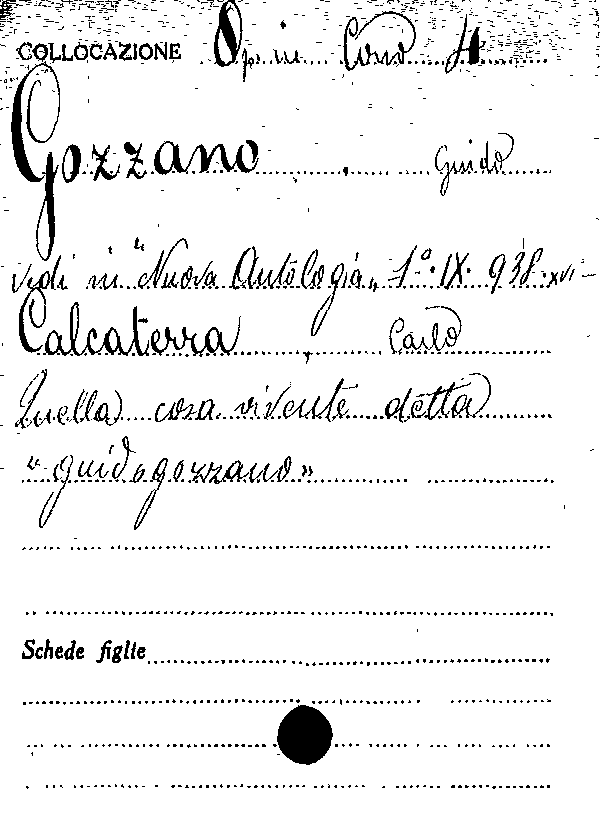 COLLOCAZIONE Op. in Cons 4
Gozzano, Guido
vedi in "Nuova Antologia" 1°. IX. 938. XVI-
Calcaterra, Carlo
Quella cosa vivente detta
"guidogozzano"
Schede figlie